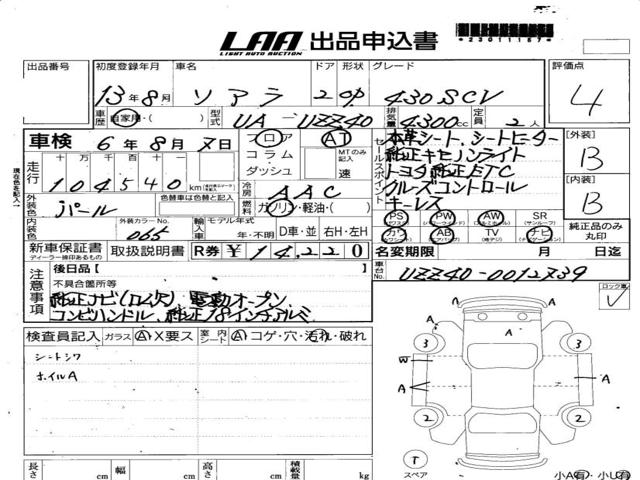 LAA 出品申込書
LIGHT AUTO AUCTION
*23011187*
出品番号 初度登録年月 車名 ドア 形状 グレード 評価点
13年8月 ソアラ 2 OP 430SCV 4
車歴 自家用・( ) 型式 UA-UZZ40 排気量 4300cc 定員 人
車検 6年8月 日 フロア AT
コラム・ MTのみ記入
ダッシュ 速
セールスポイント
本革シート、シートヒーター
純正キセノンライト
トヨタ純正ETC
クルーズコントロール
キーレス
[外装] B
[内装] B
現在色を記入
走行 十万千百十
104540km
冷房 AAC
外装色 パール 色替車は色替と記入
燃料 ガソリン・軽油・( )
内装色 外装カラーNo. 065 輸入車 モデル年式 年・不明 D車・並 右H・左H
PS PW AW SR
カワ AB TV ナビ
純正品のみ丸印
新車保証書 取扱説明書 R券 ¥14,220
ディーラー捺印あるもの
名変期限 月 日迄
車台No. UZZ40-0012739
注意事項
後日品[ ]
不具合箇所等
純正ナビ(ロム欠) 電動オープン
コンビハンドル、純正18インチアルミ
ロック車
検査員記入 ガラス A・X要ス 室内シート A・コゲ・穴・汚れ・破れ
シートシワ
ホイルA
3 3
W
A A
A
2 2
T
スペア
長さ cm 幅 cm 高さ cm 積載量 kg
小A有・小U有